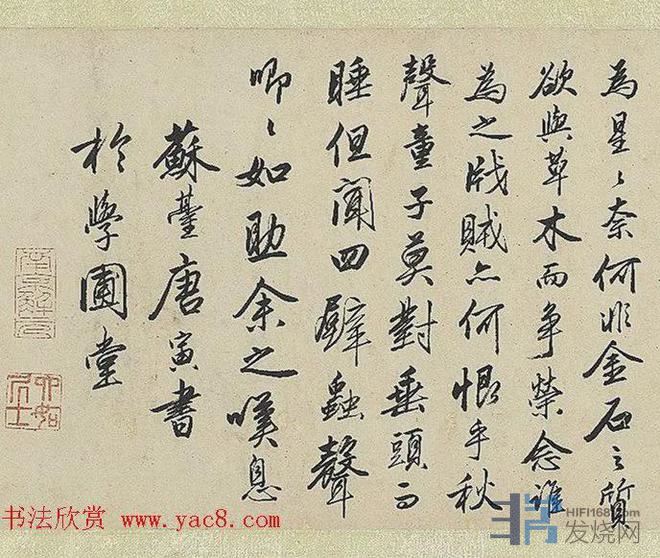 為星〻奈何非金石之質
欲與草木而争榮念誰
為之戕賊亦何恨乎秋
聲童子莫對垂頭而
睡但聞四壁蟲聲
唧〻如助余之嘆息
蘇臺唐寅書
於學圃堂
南京解元
六如居士
书法欣赏 www.yac8.com
HIFI168.com
发烧网